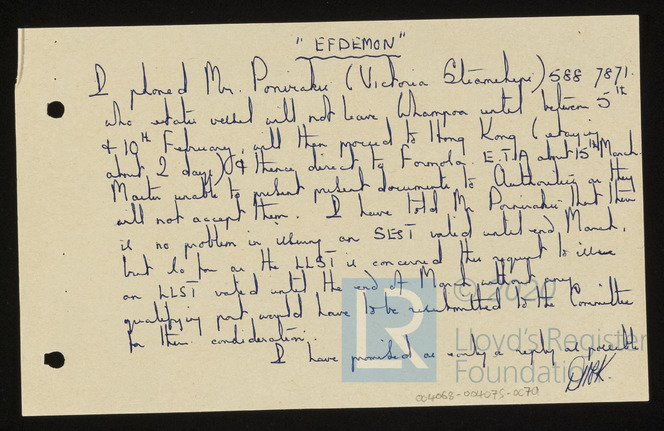 "EFDEMON"
I phoned Mr. (Victoria Steamships) 588 7871.
who states vessel will not leave Whampoa until between 5th
& 10th February, will then proceed to Hong Kong (staying
about 2 days) & thence direct to Formosa. E.T.A about 15th March.
Master unable to present present documents to Authorities as they
will not accept them. I have told Mr that there
is no problem in issuing an SEST valid until end March,
but so far as the LLST is concerned this request to issue
an LLST valid until the end of March without any
qualifying port, would have to be resubmitted to the Committee
for their consideration.
I have promised as early a reply as possible
LR
© 2020
Lloyd's Register
Foundation
004068-004075-0070